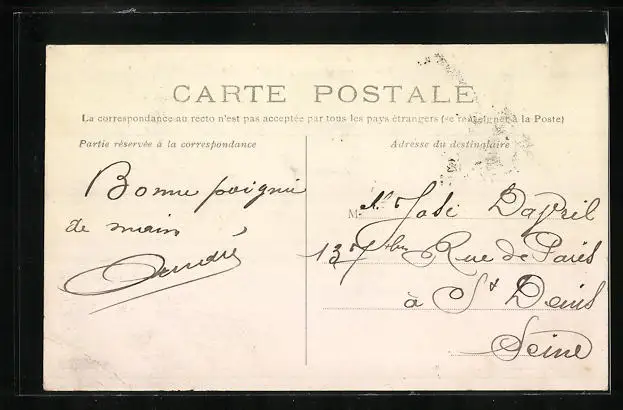 CARTE POSTALE
La correspondance au recto n'est pas acceptée par tous les pays étrangers (se renseigner à la Poste)
Partie réservée à la correspondance
Adresse du destinataire
Bonne poignée
de main
André
M. José Dapril
137 bis Rue de Paris
à St Denis
Seine